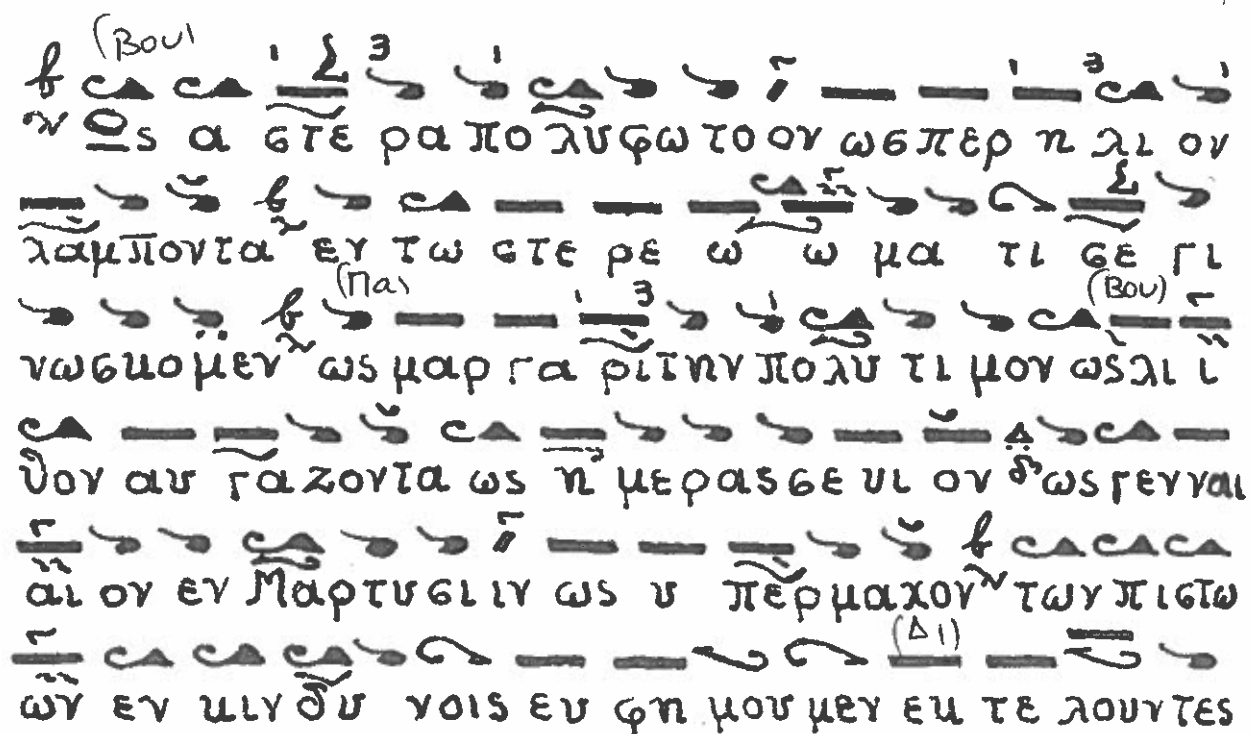 (Βου)
Ως α στε ρα πο λυ φω το ον ωσ περ η λι ον
λαμ πον τα εν τω στε ρε ω ω μα τι σε γι
(Πα) (Βου)
νωσ κο μεν ως μαρ γα ρι την πο λυ τι μον ως λι ι
θον αυ γα ζον τα ως η με ρας σε υι ον ως γεν ναι
αι ον εν Μαρ τυ σι ιν ως υ περ μα χον των πι στω
(Δι)
ων εν κιν δυ νοις ευ φη μου μεν εκ τε λουν τες